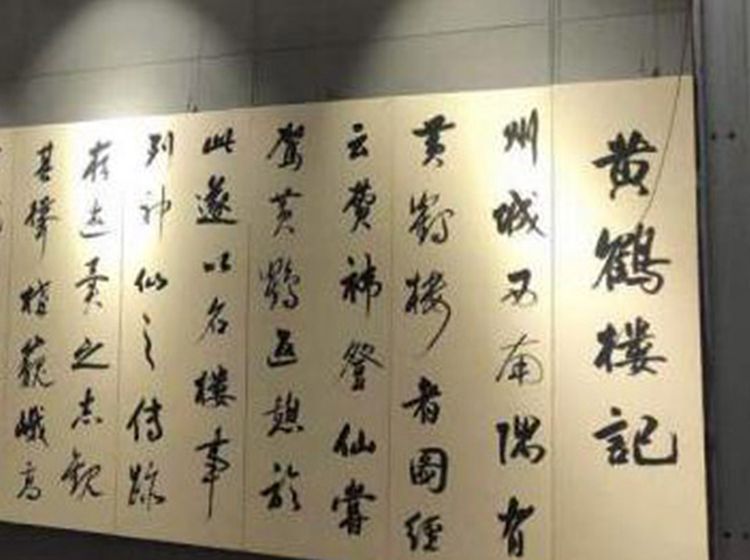 黄鶴樓記
州城西南隅有
黄鶴樓者圖經
云費禕登仙嘗
駕黄鶴返憩於
此遂以名樓事
列神仙之傳跡
存述異之志觀
其聳構巍峨高